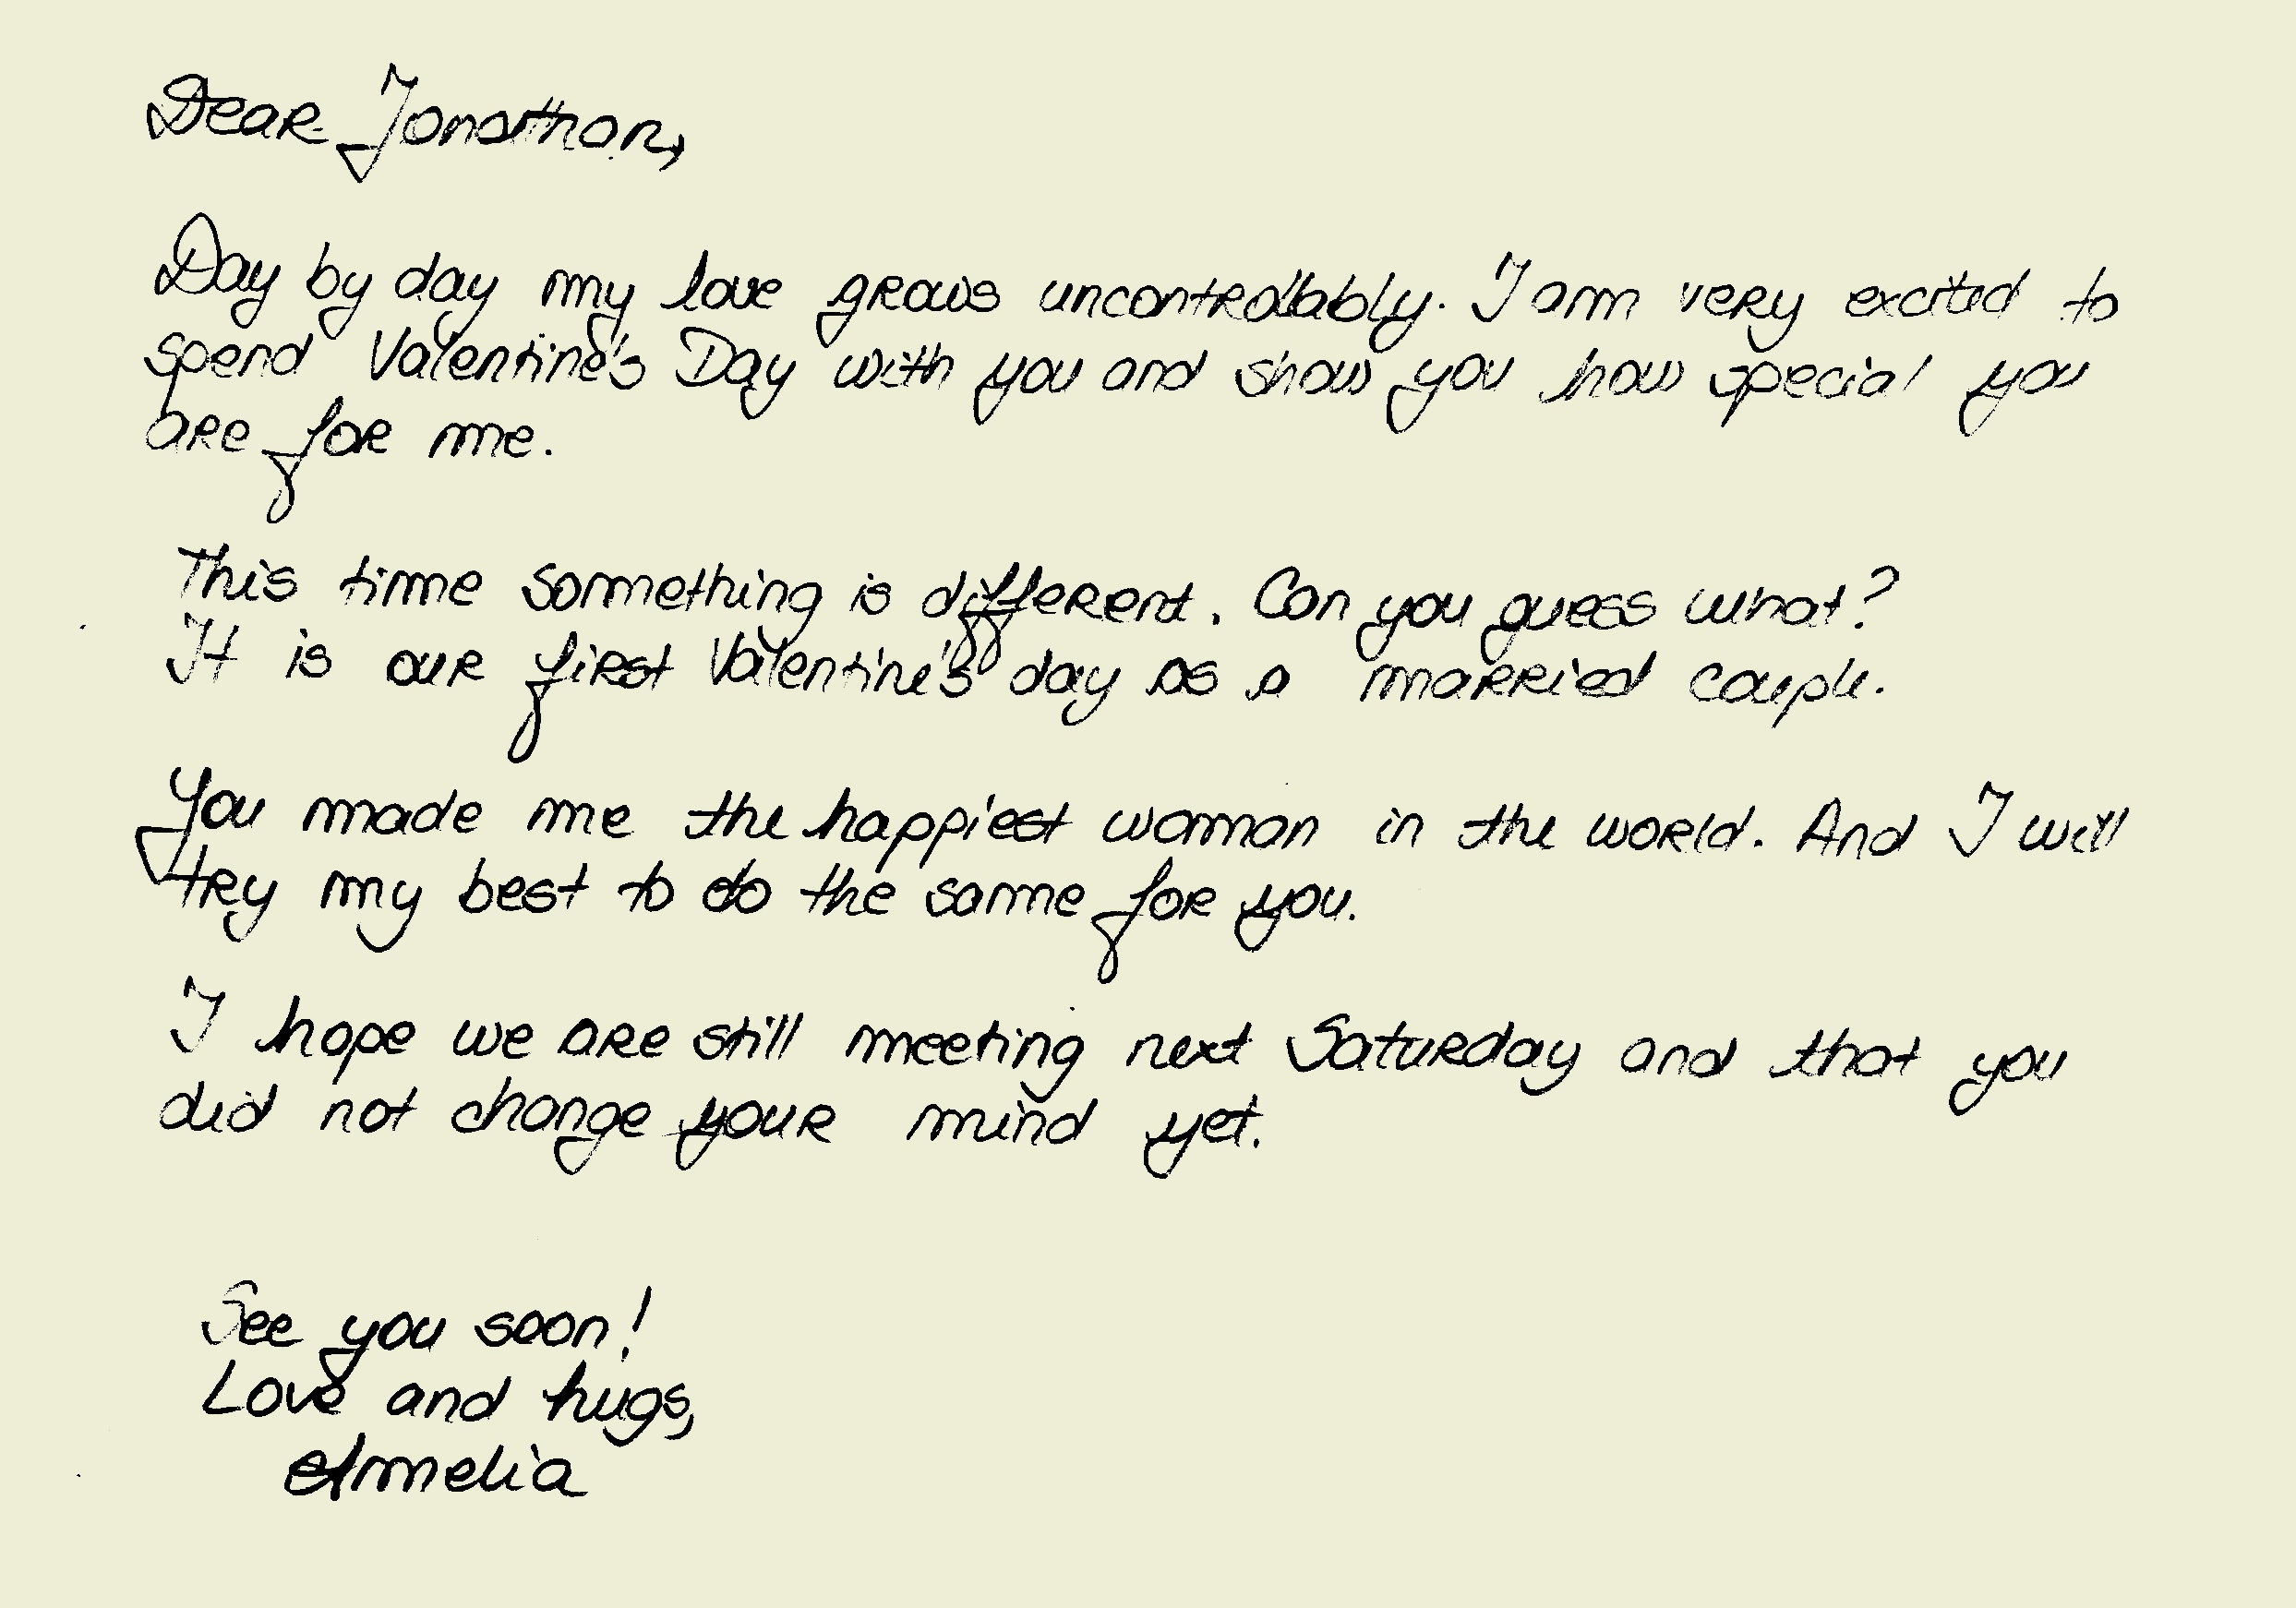 Dear Jonathan,
Day by day my love grows uncontrollably. I am very excited to
spend Valentine's Day with you and show you how special you
are for me.
This time something is different. Can you guess what?
It is our first Valentine's day as a married couple.
You made me the happiest woman in the world. And I will
try my best to do the same for you.
I hope we are still meeting next Saturday and that you
did not change your mind yet.
See you soon!
Love and hugs,
Amelia